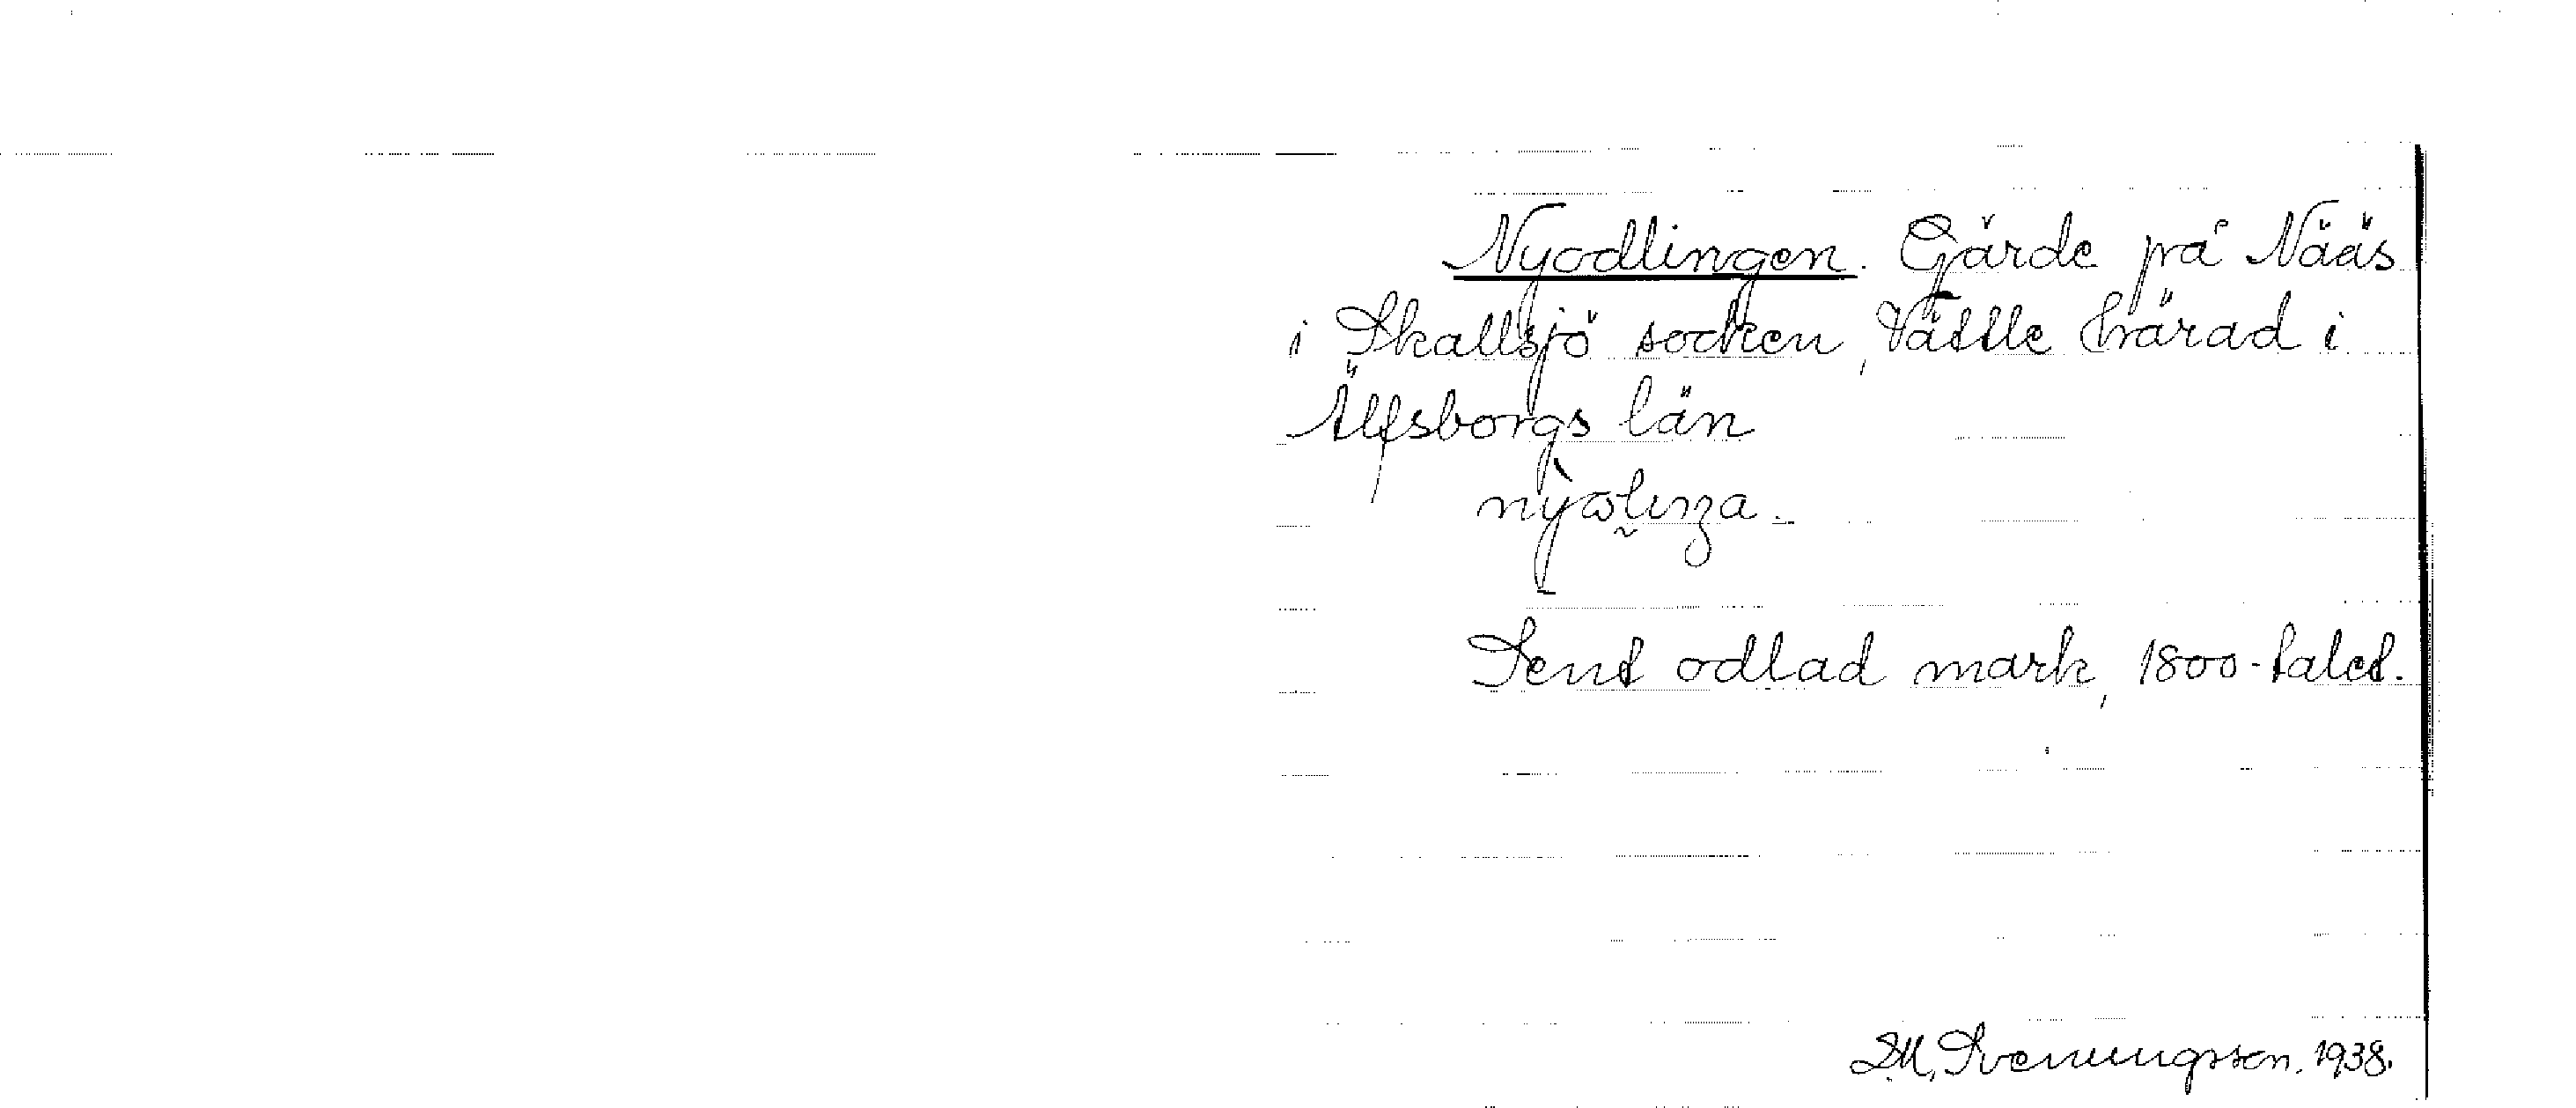 Nyodlingen. Gärde på Nääs
i Skallsjö socken, Vättle härad i
Älfsborgs län
Sent odlad mark, 1800-talet.
D.M. Svenningsson. 1938.